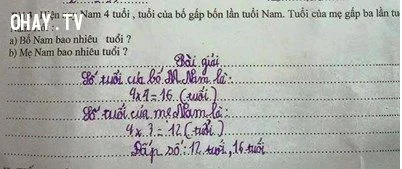 OHAY TV
Nam 4 tuổi , tuổi của bố gấp bốn lần tuổi Nam. Tuổi của mẹ gấp ba lần
a) Bố Nam bao nhiêu tuổi ?
b) Mẹ Nam bao nhiêu tuổi ?
Bài giải
Số tuổi của bố Nam là:
4 x 4 = 16 (tuổi)
Số tuổi của mẹ Nam là:
4 x ? = 12 (tuổi)
Đáp số: 12 tuổi, 16 tuổi